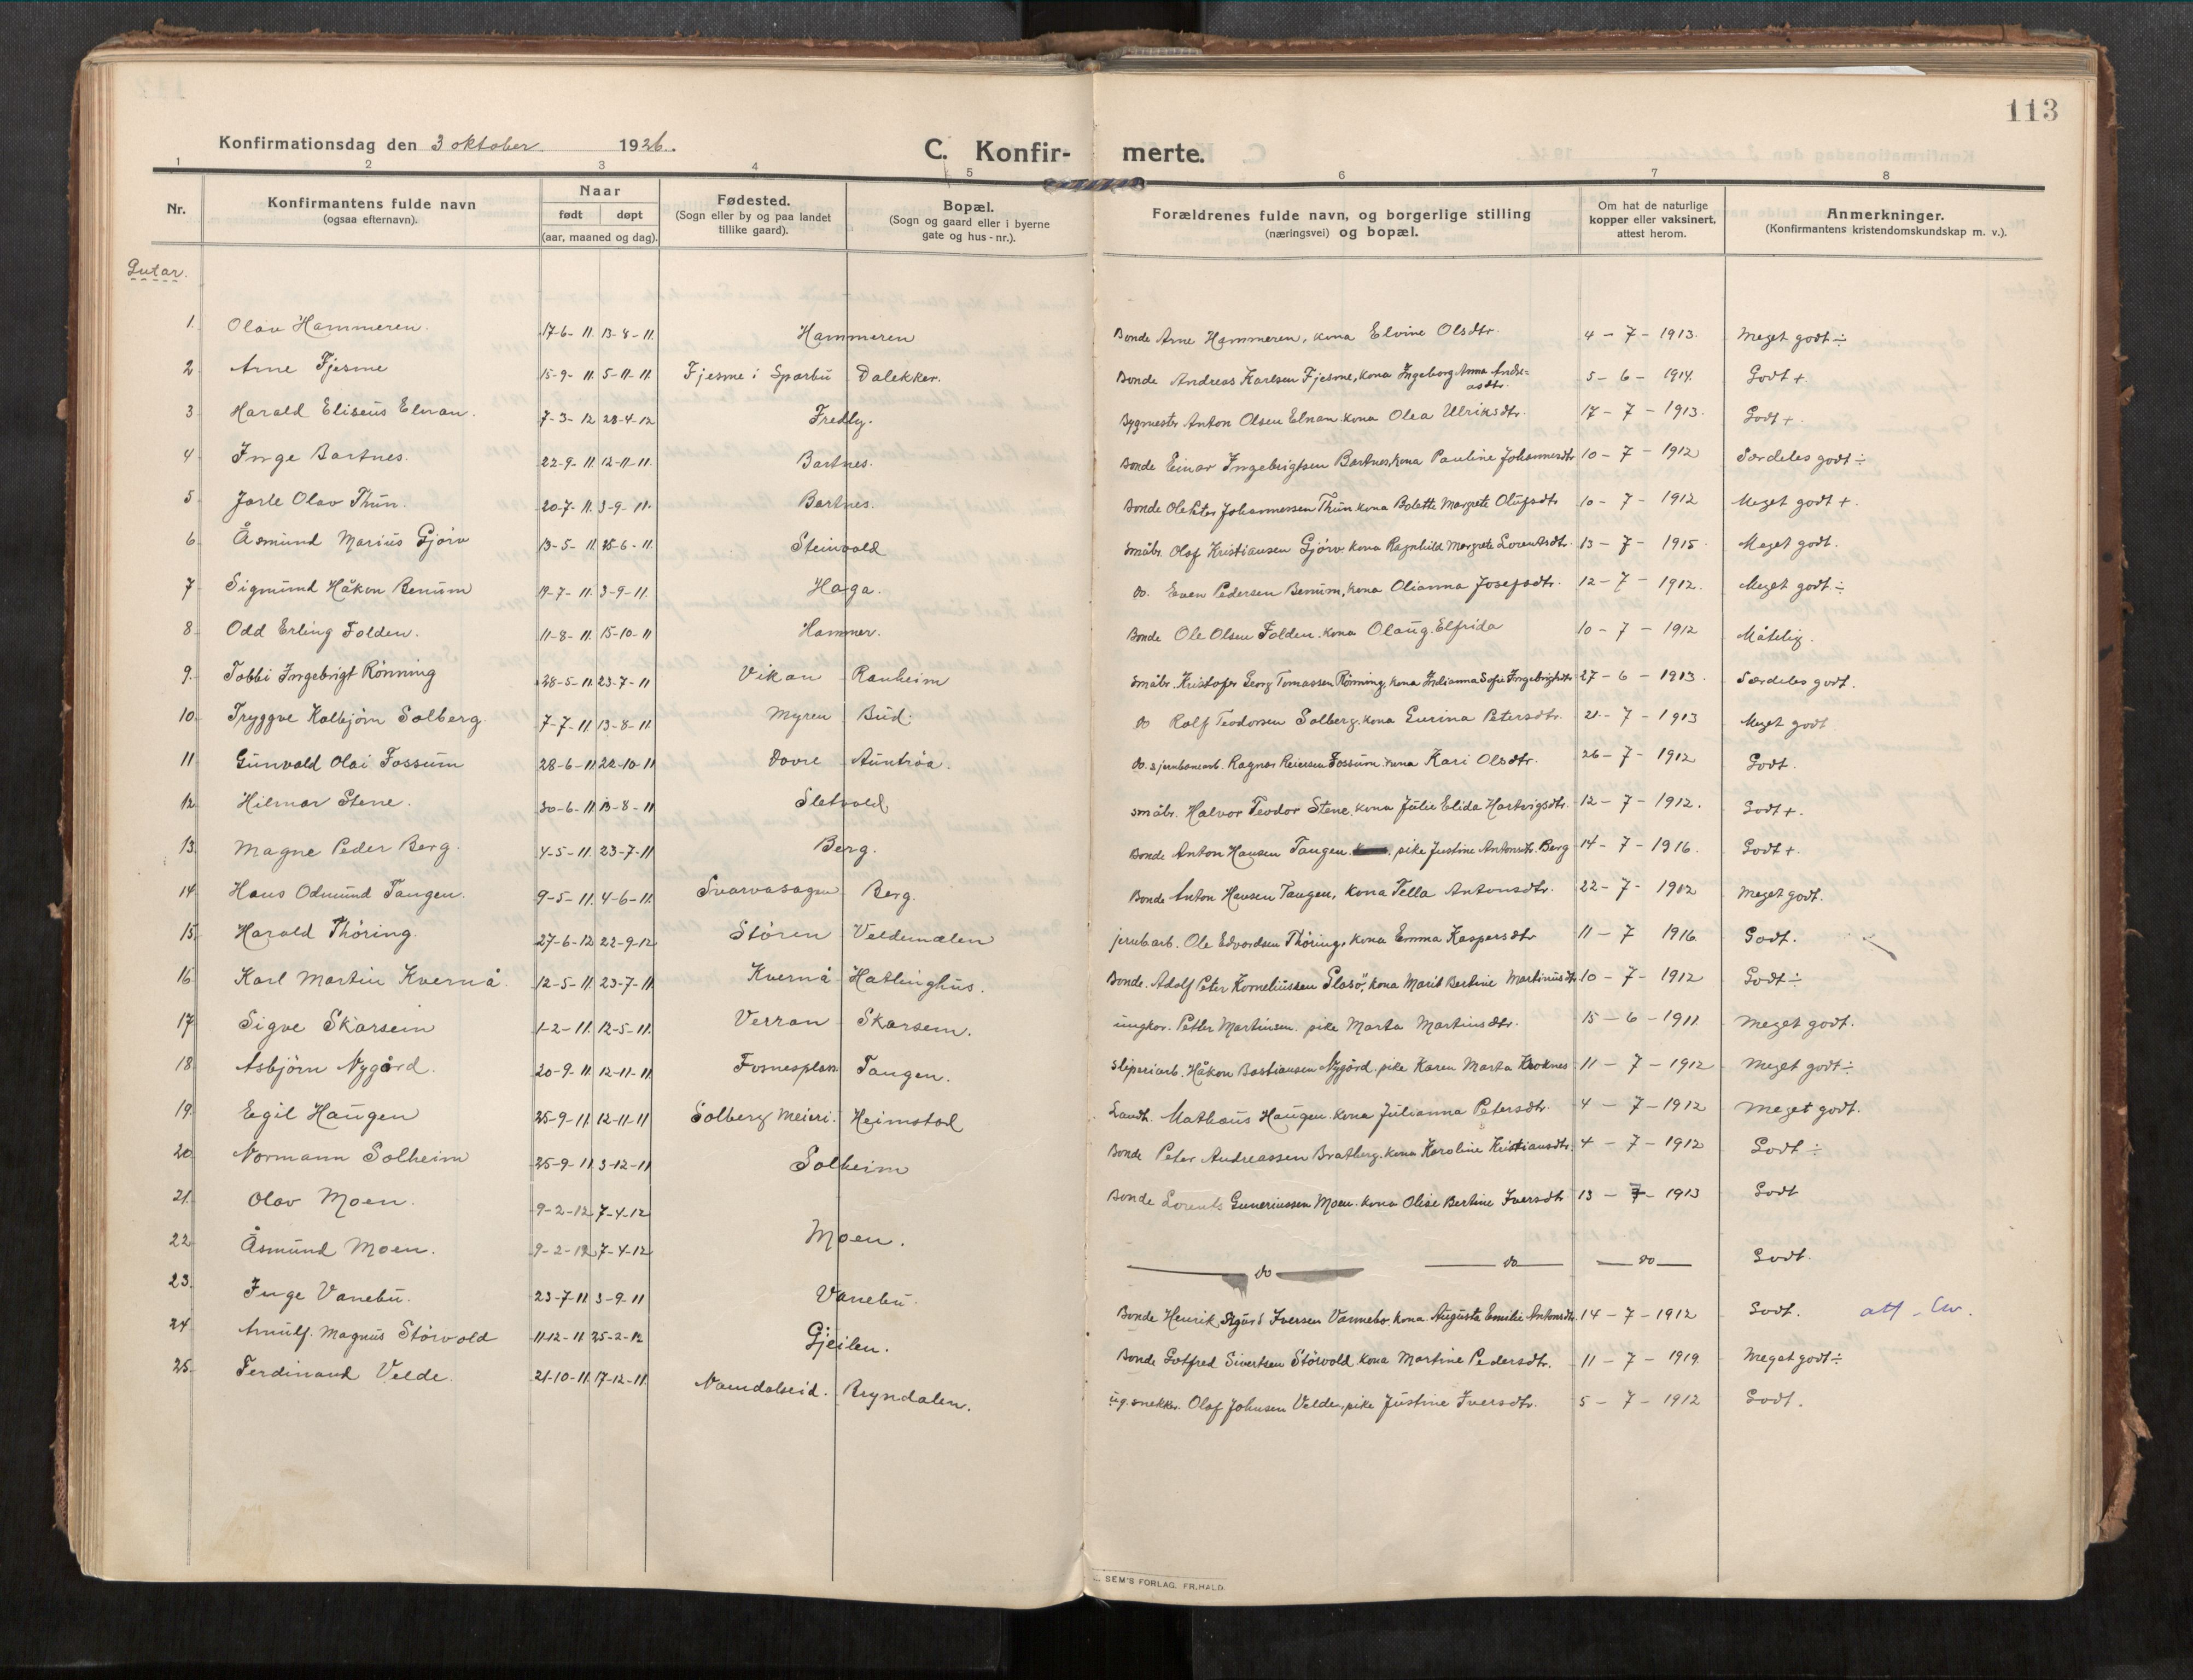 113
Konfirmationsdag den 3 oktober 1926.
C. Konfir- merte.
1 2 3 4 5 6 7 8
Nr.
Konfirmantens fulde navn (ogsaa efternavn).
Naar født døpt (aar, maaned og dag).
Fødested. (Sogn eller by og paa landet tillike gaard).
Bopæl. (Sogn og gaard eller i byerne gate og hus-nr.).
Forældrenes fulde navn, og borgerlige stilling (næringsvei) og bopæl.
Om hat de naturlige kopper eller vaksinert, attest herom.
Anmerkninger. (Konfirmantens kristendomskundskap m. v.).
Gutar.
1. Olav Hammeren. 17-6-11. 13-8-11. Hammeren Bonde Arne Hammeren, kona Elvine Olsdtr. 4-7-1913. Meget godt ÷
2 Arne Fjesme 15-9-11. 5-11-11. Fjesme i Sparbu Dalekker. Bonde Andreas Karlsen Fjesme, kona Ingeborg Anna Andreasdtr. 5-6-1914. Godt +
3 Harald Eliseus Elnan. 7-3-12 28-4-12 Fredly. Bygmester Anton Olsen Elnan. kona Olea Ulriksdtr. 17-7-1913. Godt +.
4 Inge Bartnes. 22-9-11. 12-11-11. Bartnes. Bonde Einar Ingebrigtsen Bartnes, kona Pauline Johannesdtr 10-7-1912 Særdeles godt ÷
5 Jarle Olav Thun. 20-7-11. 3-9-11. Bartnes. Bonde Johannessen Thun kona Bolette Margrete Olufsdtr 10-7-1912 Meget godt +.
6 Åsmund Marius Gjörv 13-5-11. 25-6-11. Steinvold Småbr. Olaf Kristiansen Gjörv kona Ragnhild Margrete Lorentsdtr. 13-7-1915. Meget godt.
7 Sigmund Håkon Benum 19-7-11. 3-9-11. Haga. do. Even Pedersen Benum, kona Olianna Josefsdtr. 12-7-1912. Meget godt ÷
8 Odd Erling Folden. 11-8-11. 15-10-11 Hammer. Bonde Ole Olsen Folden. kona Olaug Elfrida 10-7-1912 Måtelig.
9. Tobbi Ingebrigt Rönning 28-5-11. 23-7-11 Vikan Ranheim Småbr. Kristofer Georg Tomassen Rönning, kona Indianna Sofie Ingebrigtsdtr 27-6-1913. Særdeles godt.
10. Tryggve Kolbjörn Solberg 7-7-11. 13-8-11. Myren Bud. do Rolf Teodorsen Solberg. kona Gurina Petersdtr. 21-7-1913 Meget godt
11 Gunvald Olai Fossum 28-6-11 22-10-11 Dovre Auntröa. do. & jernbanearb. Ragnar Reiersen Fossum. kona Kari Olsdtr. 26-7-1912 Godt.
12. Hilmar Stene. 30-6-11. 13-8-11 Sletvold småbr. Halvor Teodor Stene, kona Julie Elida Hartvigsdtr. 12-7-1912. Godt +.
13. Magne Peder Berg. 4-5-11. 23-7-11 Berg. Bonde Anton Hansen Tangen. pike Justine Antonsdtr. Berg 14-7-1916. Godt +.
14. Hans Odmund Tangen. 9-5-11. 4-6-11. Svarvasagen Berg. Bonde Anton Hansen Tangen, kona Tella Antonsdtr. 22-7-1912 Meget godt.
15. Harald Thöring. 27-6-12 22-9-12 Stören Veldemælen jernbarb. Ole Edvardsen Thöring, kona Emma Kaspersdtr 11-7 1916 Godt.
16 Karl Martin Kvernå. 12-5-11. 23-7-11 Kvernå Hatlinghus. Bonde. Adolf Peter Korneliussen Glasö, kona Marit Bertine Martinusdtr. 10-7-1912 Godt ÷
17 Sigve Skarsem 1-2-11. 12-5-11. Verran Skarsem. ungkar. Petter Martinsen. pike Marta Martinsdtr. 15-6-1911. Meget godt.
18. Asbjörn Nygård. 20-9-11. 12-11-11. Fosnesplass Tangen. sliperiarb. Håkon Bastiansen Nygård. pike Karen Marta Kroknes 11-7-1912 Meget godt ÷
19. Egil Haugen 25-9-11. 12-11-11 Solberg Meieri. Heimstad Landh. Mathæus Haugen. kona Julianna Petersdtr. 4-7-1912 Meget godt.
20. Normann Solheim 25-9-11. 3-12-11 Solheim Bonde Peter Andreassen Bratberg. kona Karoline Kristiansdtr. 4-7-1912 Godt ÷
21. Olav Moen. 9-2-12. 7-4-12 Bonde Lorents Guneriussen Moen. kona Olise Bertine Iversdtr 13-7-1913 Godt
22. Åsmund Moen. 9-2-12 7-4-12 Moen. do do do Godt.
23. Inge Vanebu. 23-7-11 3-9-11 Vanebu. Bonde Henrik Sigurd Iversen Vannebo. kona Augusta Emilie Antonsdtr. 14-7-1912 Godt. att
24. Arnulf Magnus Störvold 11-12-11 25-2-12 Gjeilen. Bonde Gotfred Sivertsen Störvold. kona Martine Pedersdtr. 11-7-1919. Meget godt ÷
25. Ferdinand Velde. 21-10-11. 17-12-11. Namdalseid. Bryndalen. ug. snekker. Olaf Johnsen Velde, pike Justine Iversdtr. 5-7-1912 Godt.
SEM'S FORLAG. FR.HALD.